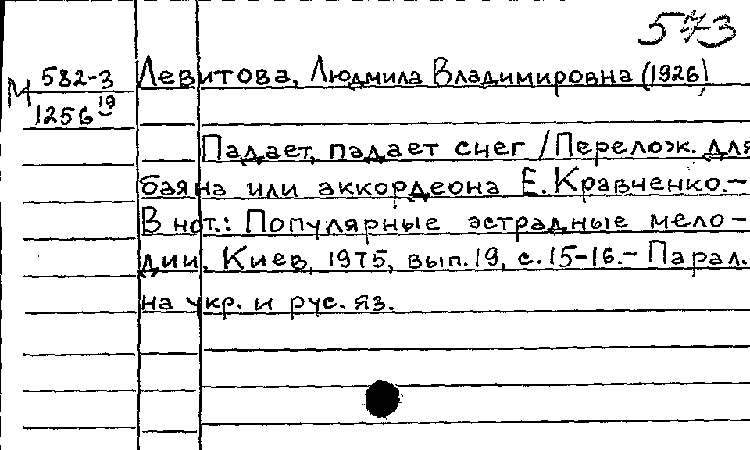 573
М 582-3 Левитова, Людмила Владимировна (1926)
1256 19
Падает, падает снег / Перелож. для
баяна или аккордеона Е. Кравченко.–
В нот.: Популярные эстрадные мело-
дии. Киев, 1975, вып. 19, с. 15-16.– Парал.
на укр. и рус. яз.